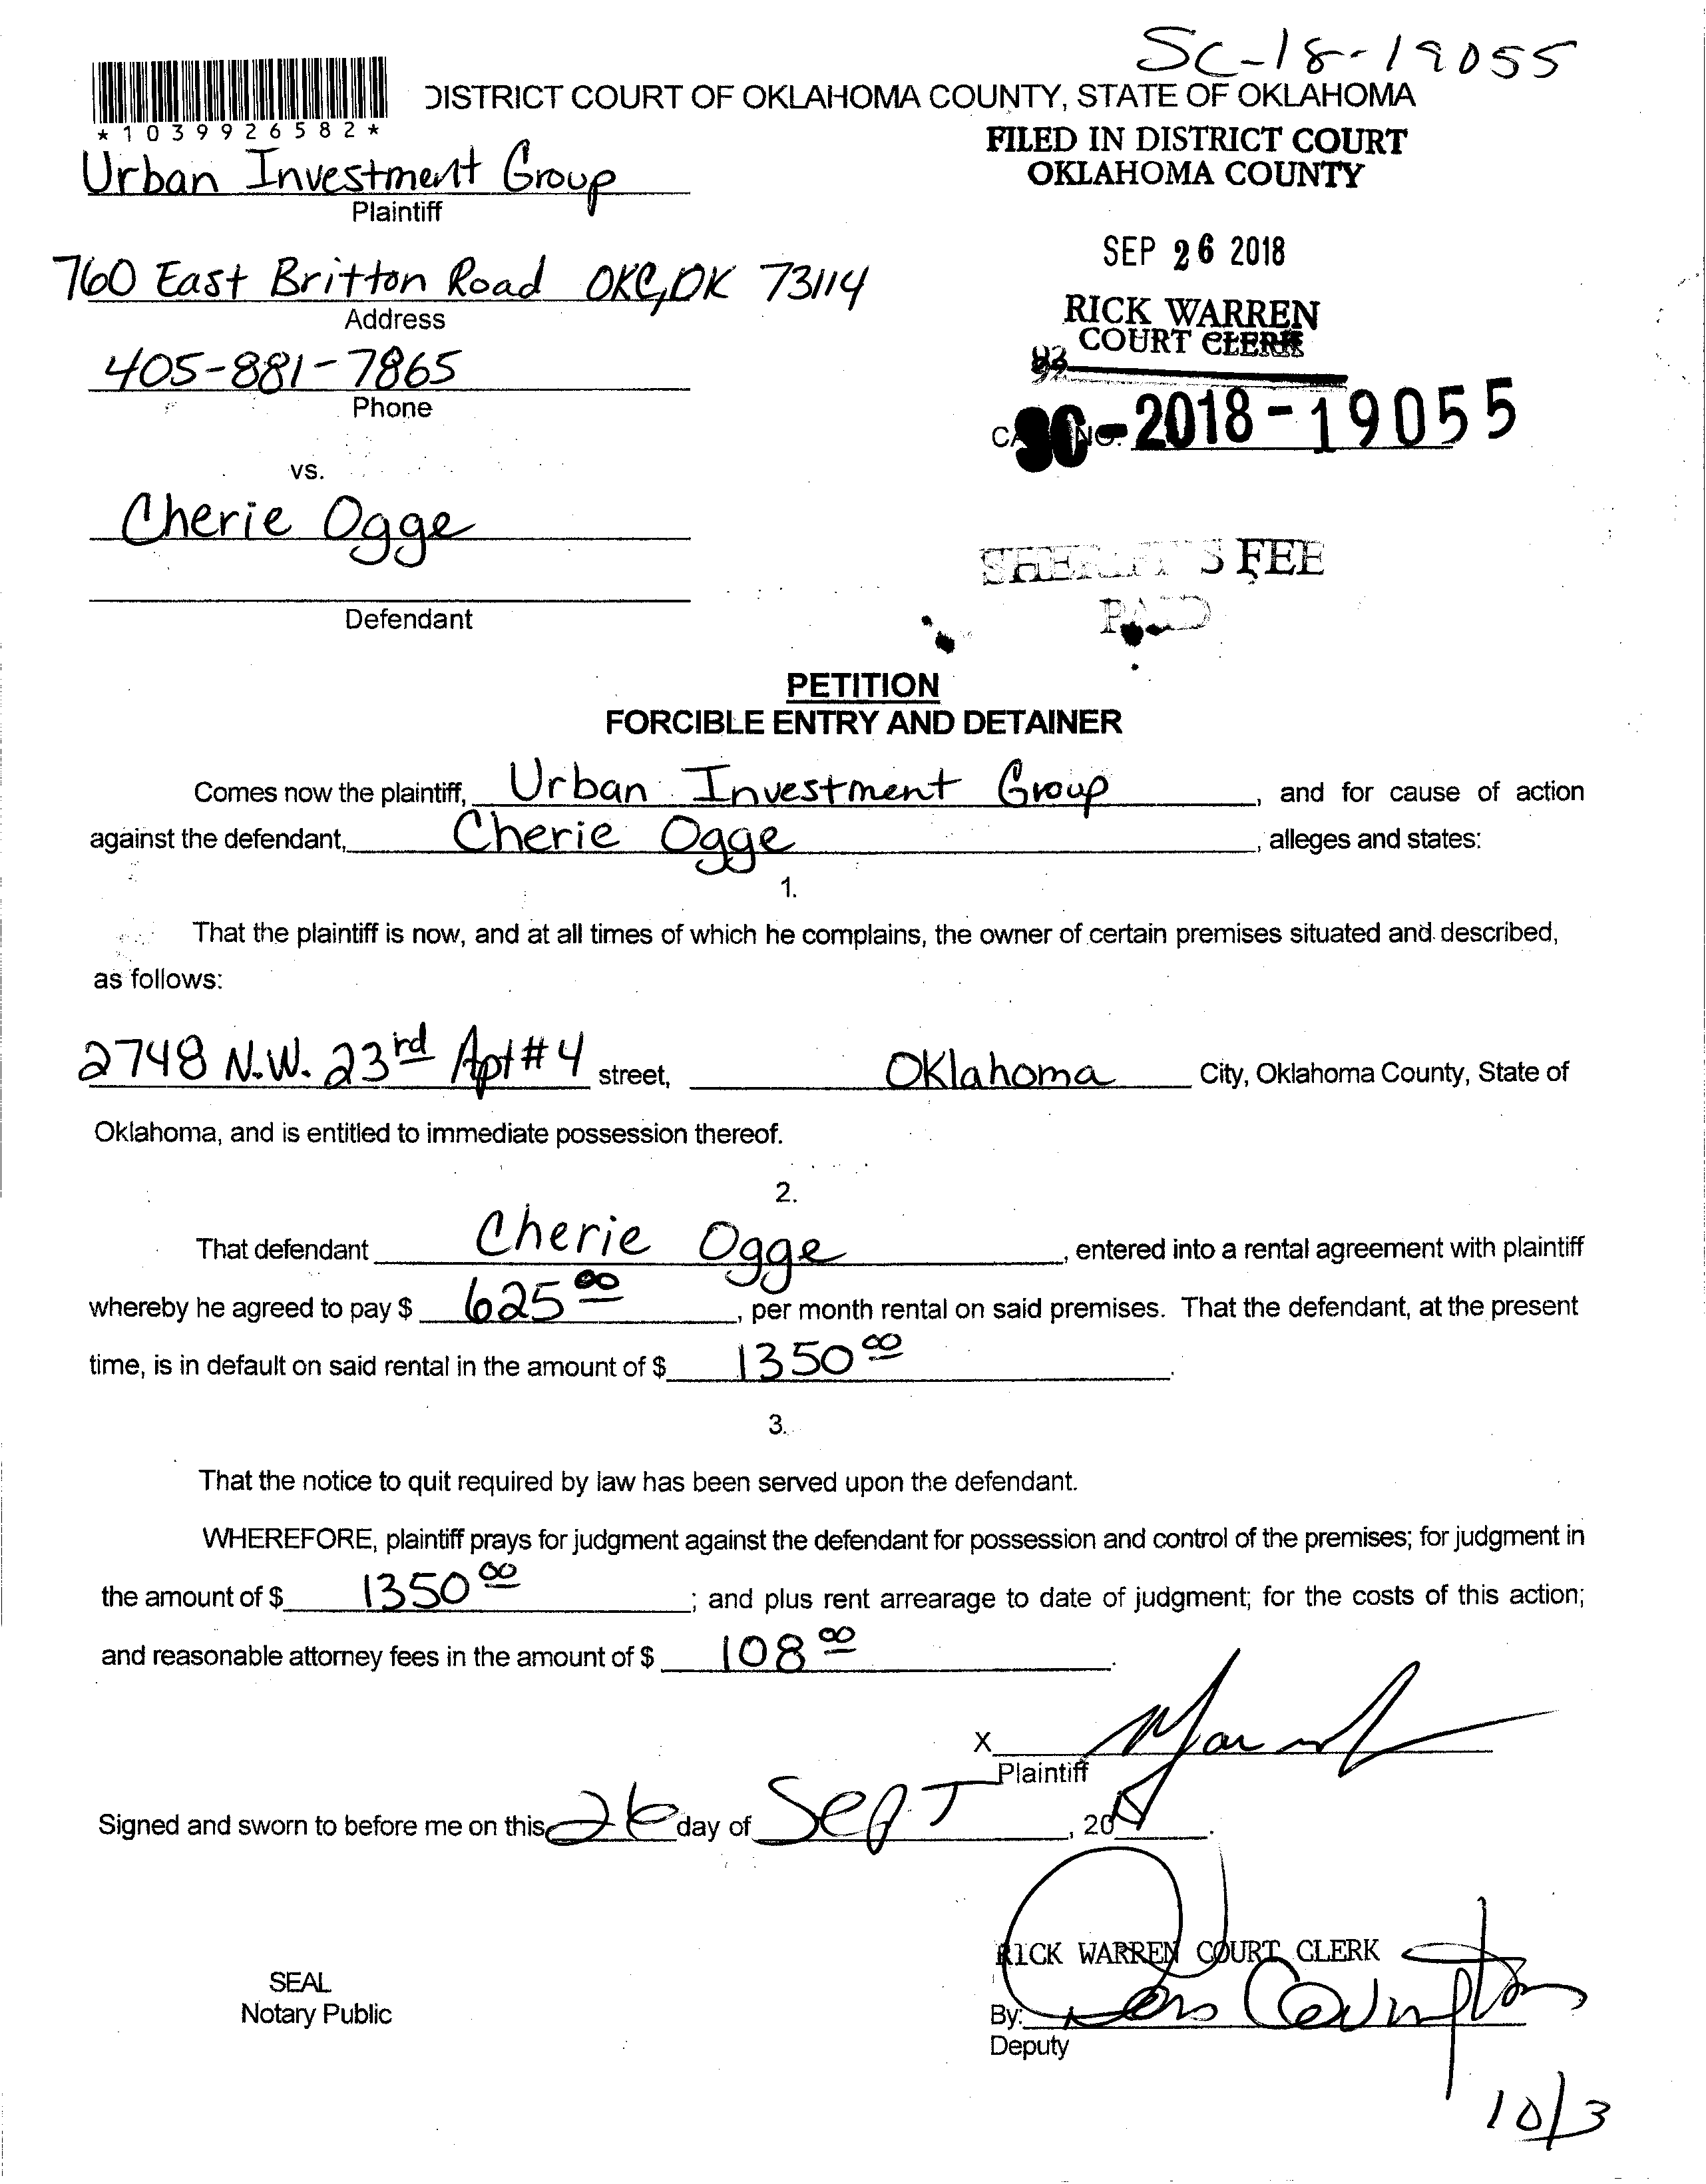 SC-18-19055
DISTRICT COURT OF OKLAHOMA COUNTY, STATE OF OKLAHOMA
*1039926582*
FILED IN DISTRICT COURT
OKLAHOMA COUNTY
Urban Investment Group
Plaintiff
SEP 26 2018
760 East Britton Road OKC, OK 73114
Address
RICK WARREN
COURT CLERK
405-881-7865
Phone
SC-2018-19055
vs.
Cherie Ogge
SHERIFF'S FEE
PAID
Defendant
PETITION
FORCIBLE ENTRY AND DETAINER
Comes now the plaintiff, Urban Investment Group, and for cause of action
against the defendant, Cherie Ogge, alleges and states:
1.
That the plaintiff is now, and at all times of which he complains, the owner of certain premises situated and described,
as follows:
2748 N.W. 23rd Apt #4 street, Oklahoma City, Oklahoma County, State of
Oklahoma, and is entitled to immediate possession thereof.
2.
That defendant Cherie Ogge, entered into a rental agreement with plaintiff
whereby he agreed to pay $ 625 00, per month rental on said premises. That the defendant, at the present
time, is in default on said rental in the amount of $ 1350 00.
3.
That the notice to quit required by law has been served upon the defendant.
WHEREFORE, plaintiff prays for judgment against the defendant for possession and control of the premises; for judgment in
the amount of $ 1350 00; and plus rent arrearage to date of judgment; for the costs of this action;
and reasonable attorney fees in the amount of $ 108 00.
X
Plaintiff
Signed and sworn to before me on this 26 day of Sept, 2018.
RICK WARREN COURT CLERK
SEAL
Notary Public
By: Covington
Deputy
10/3